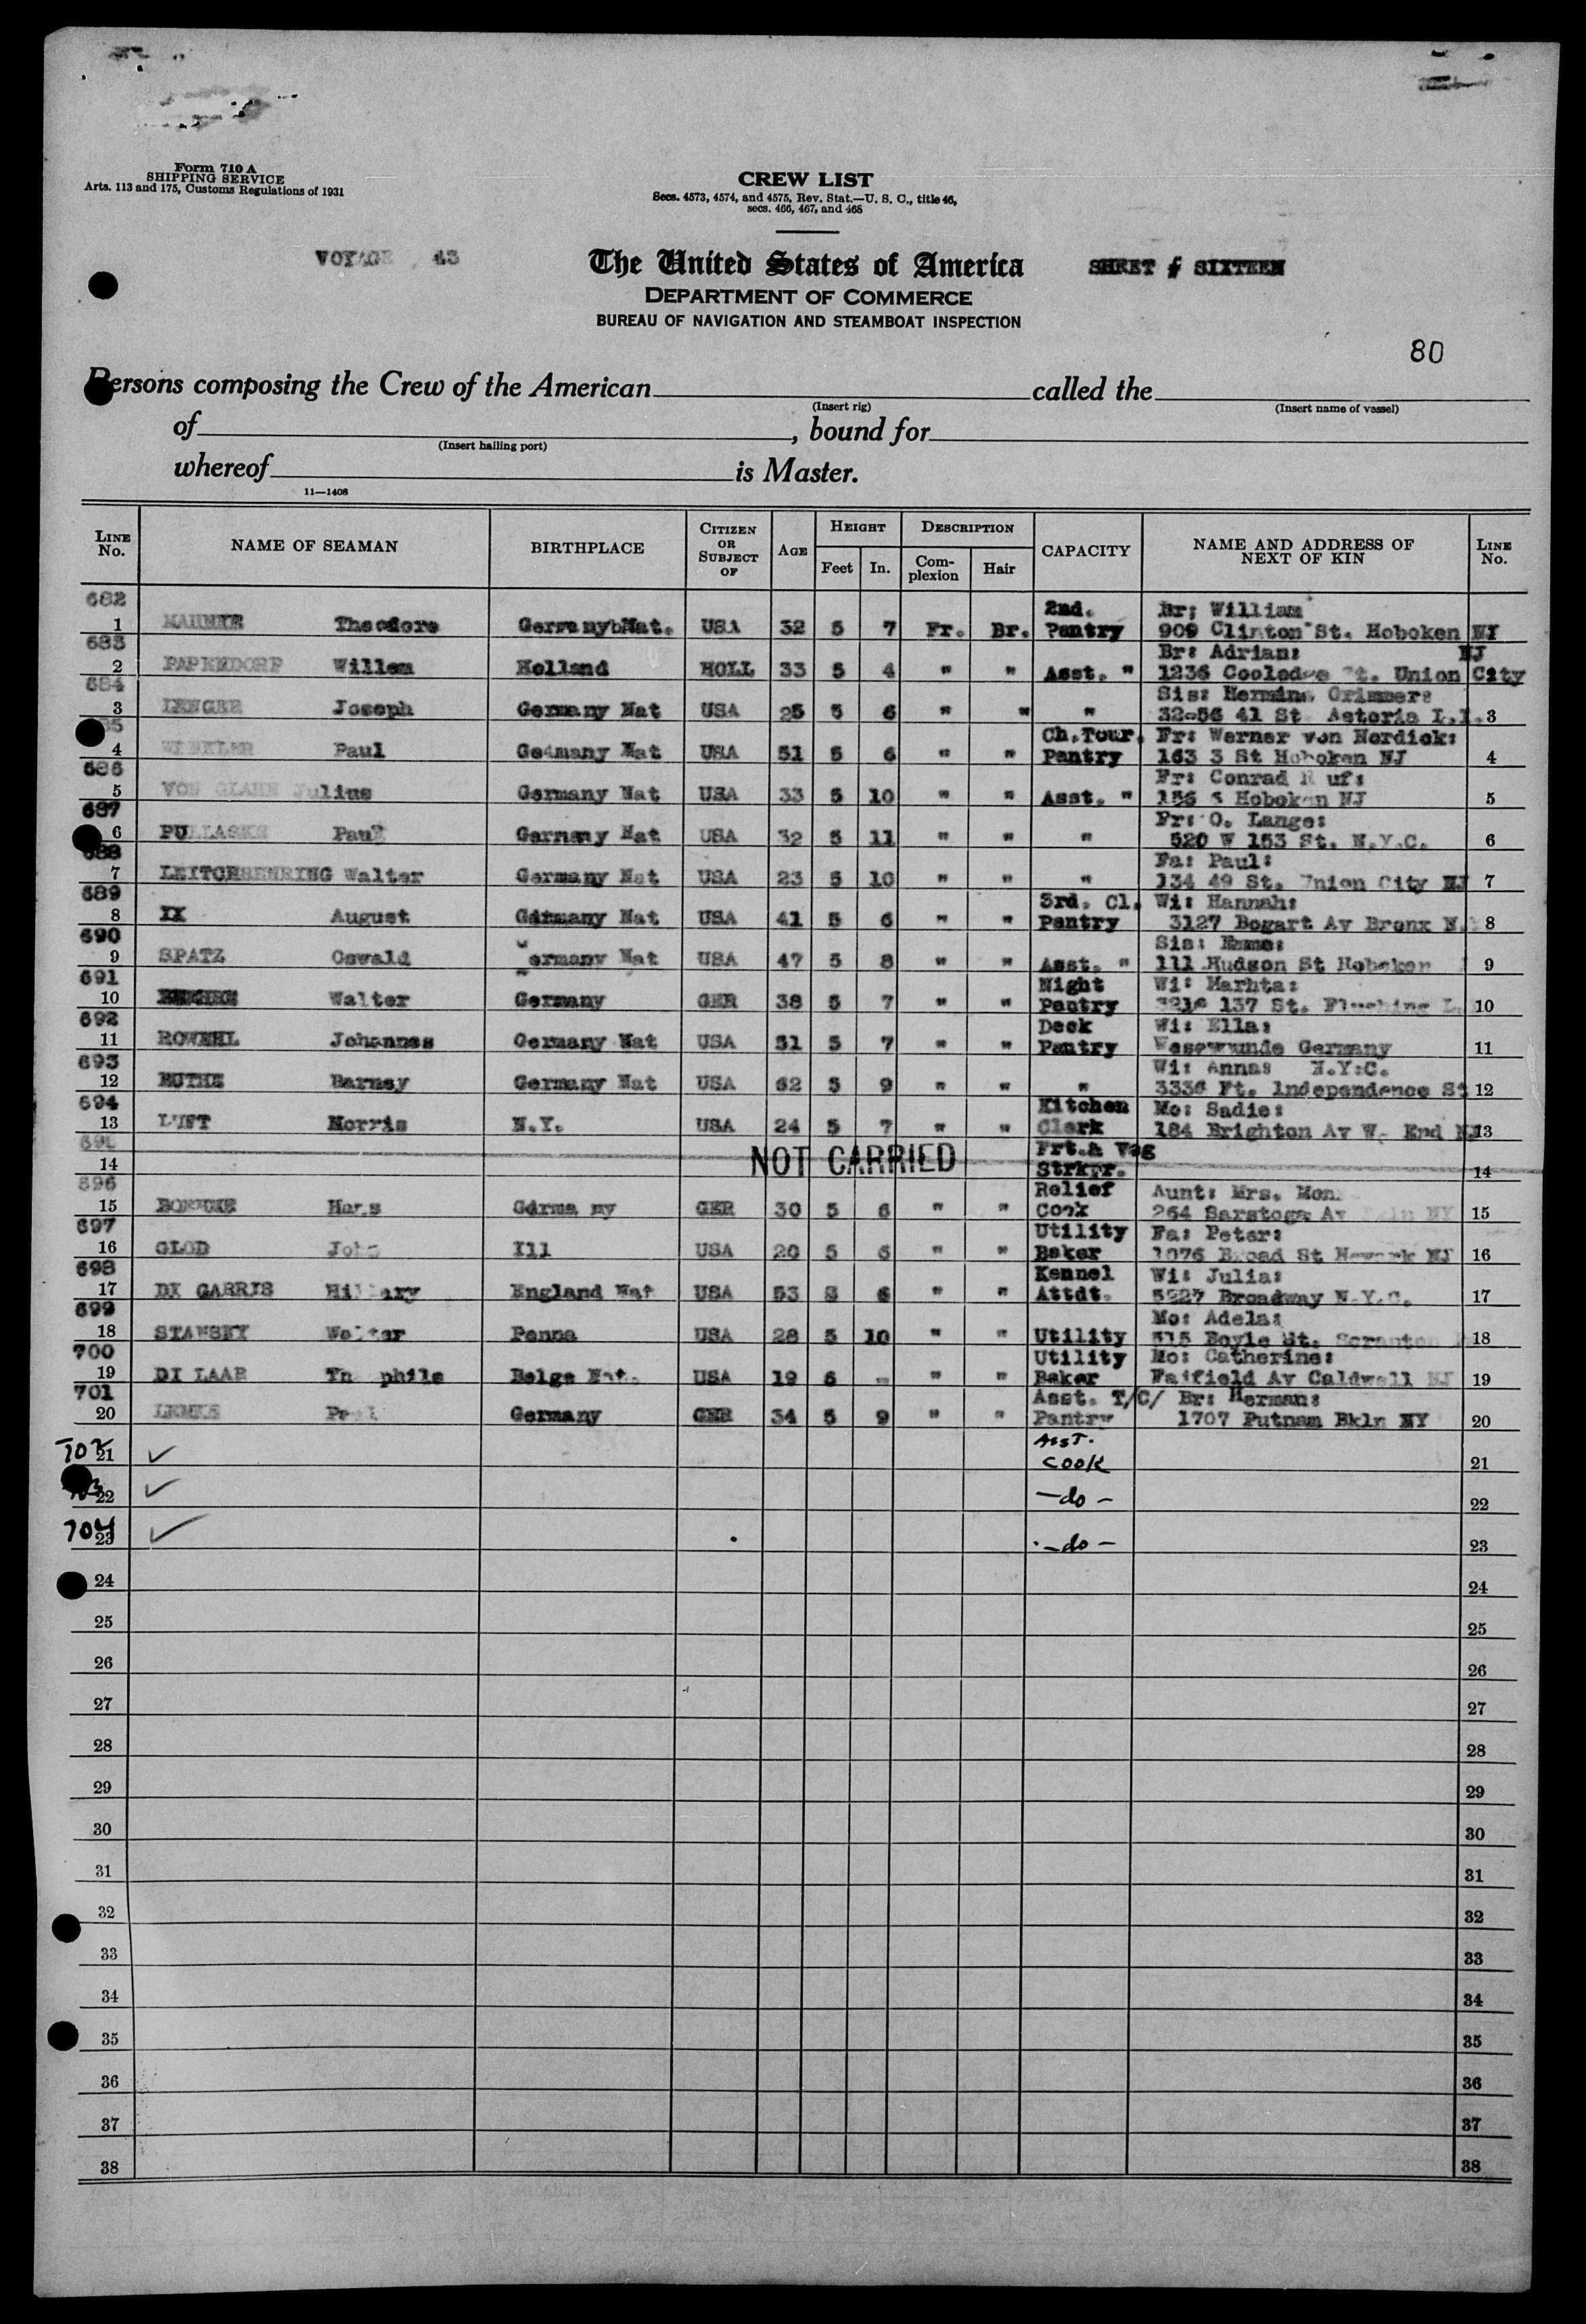 Form 710 A
SHIPPING SERVICE
Arts. 113 and 175, Customs Regulations of 1931
CREW LIST
Secs. 4573, 4574, and 4575, Rev. Stat.—U. S. C., title 46,
secs. 466, 467, and 468
VOYAGE 43
The United States of America
SHEET # SIXTEEN
DEPARTMENT OF COMMERCE
BUREAU OF NAVIGATION AND STEAMBOAT INSPECTION
80
Persons composing the Crew of the American called the
(Insert rig) (Insert name of vessel)
of , bound for
(Insert hailing port)
whereof is Master.
11—1408
LINE No. NAME OF SEAMAN BIRTHPLACE CITIZEN OR SUBJECT OF AGE HEIGHT Feet In. DESCRIPTION Complexion Hair CAPACITY NAME AND ADDRESS OF NEXT OF KIN LINE No.
682 2nd. Br; William
1 Theodore USA 32 5 7 Fr. Br. Pantry 909 Clinton St. Hoboken NJ
683 Br: Adrian: NJ
2 PAPENDORP Willem Holland HOLL 33 5 4 " " Asst. " 1236 St. Union City
684 Sis:
3 LENGER Joseph Germany Nat USA 25 5 6 " " " 32-56 41 St Astoria L.I. 3
Ch.Tour. Fr: Werner von Nordick:
4 Paul Ge4many Nat USA 51 5 6 " " Pantry 163 3 St Hoboken NJ 4
686 Fr: Conrad
5 VON GLAHN Julius Germany Nat USA 33 5 10 " " Asst. " Hoboken NJ 5
687 Fr: O. Lange:
6 Paul Germany Nat USA 32 5 11 " " " 520 W 153 St. N.Y.C. 6
688 Fa: Paul:
7 Walter Germany Nat USA 23 5 10 " " " 134 49 St. Union City NJ 7
689 3rd. Cl. Wi: Hannah:
8 August Germany Nat USA 41 5 6 " " Pantry 3127 Bogart Av Bronx 8
690 Sis:
9 SPATZ Oswald ermany Nat USA 47 5 8 " " Asst. " 111 Hudson St Hoboken 9
691 Night Wi: Marhta:
10 Walter Germany GER 38 5 7 " " Pantry 137 St. Flushing L. 10
692 Deck Wi: Ella:
11 ROWEHL Johannes Germany Nat USA 31 5 7 " " Pantry Germany 11
693 Wi: Anna: N.Y.C.
12 Barney Germany Nat USA 62 5 9 " " " 3336 Ft. Independence St 12
694 Kitchen Mo: Sadie:
13 LUFT Morris N.Y. USA 24 5 7 " " Clerk 184 Brighton Av W. End NJ 13
Frt.& Veg
14 NOT CARRIED Strkpr. 14
696 Relief Aunt: Mrs.
15 Hans GER 30 5 6 " " Cook 264 Saratoga Av 15
697 Utility Fa: Peter:
16 GLOD Ill USA 20 5 6 " " Baker 1076 Broad St Newark NJ 16
698 Kennel Wi: Julia:
17 DE GARRIS England Nat USA 53 5 6 " " Attdt. Broadway N.Y.C. 17
699 Mo: Adela:
18 Walter Penna USA 28 5 10 " " Utility Scranton 18
700 Utility Mo: Catherine:
19 DI LAAR Belge Nat. USA 19 6 - " " Baker Faifield Av Caldwell NJ 19
701 Asst. T/C/ Br: Herman:
20 Germany GER 34 5 9 " " Pantry 1707 Putnam Bkln NY 20
702 Asst.
21 ✓ Cook 21
22 ✓ —do— 22
704
23 ✓ —do— 23
24 24
25 25
26 26
27 27
28 28
29 29
30 30
31 31
32 32
33 33
34 34
35 35
36 36
37 37
38 38